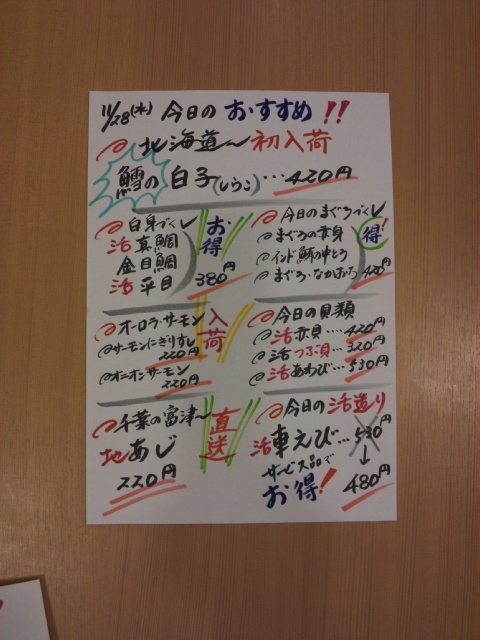 11/28(水) 今日の おすすめ!!
北海道〜初入荷
鱈の白子(しらこ)…420円
白身づくし
活 真鯛
金目鯛
活 平目
お得
380円
今日のまぐろづくし
まぐろの赤身
インド鮪の中とろ
まぐろ・なかおち
得!
420円
オーロラ・サーモン
サーモンにぎりずし
220円
オニオンサーモン
220円
入荷
今日の貝類
活 赤貝‥‥420円
活 つぶ貝…320円
活 あわび…530円
千葉の富津〜
地あじ
220円
直送
今日の活造り
活車えび…530円
↓
480円
サービス品で
お得!